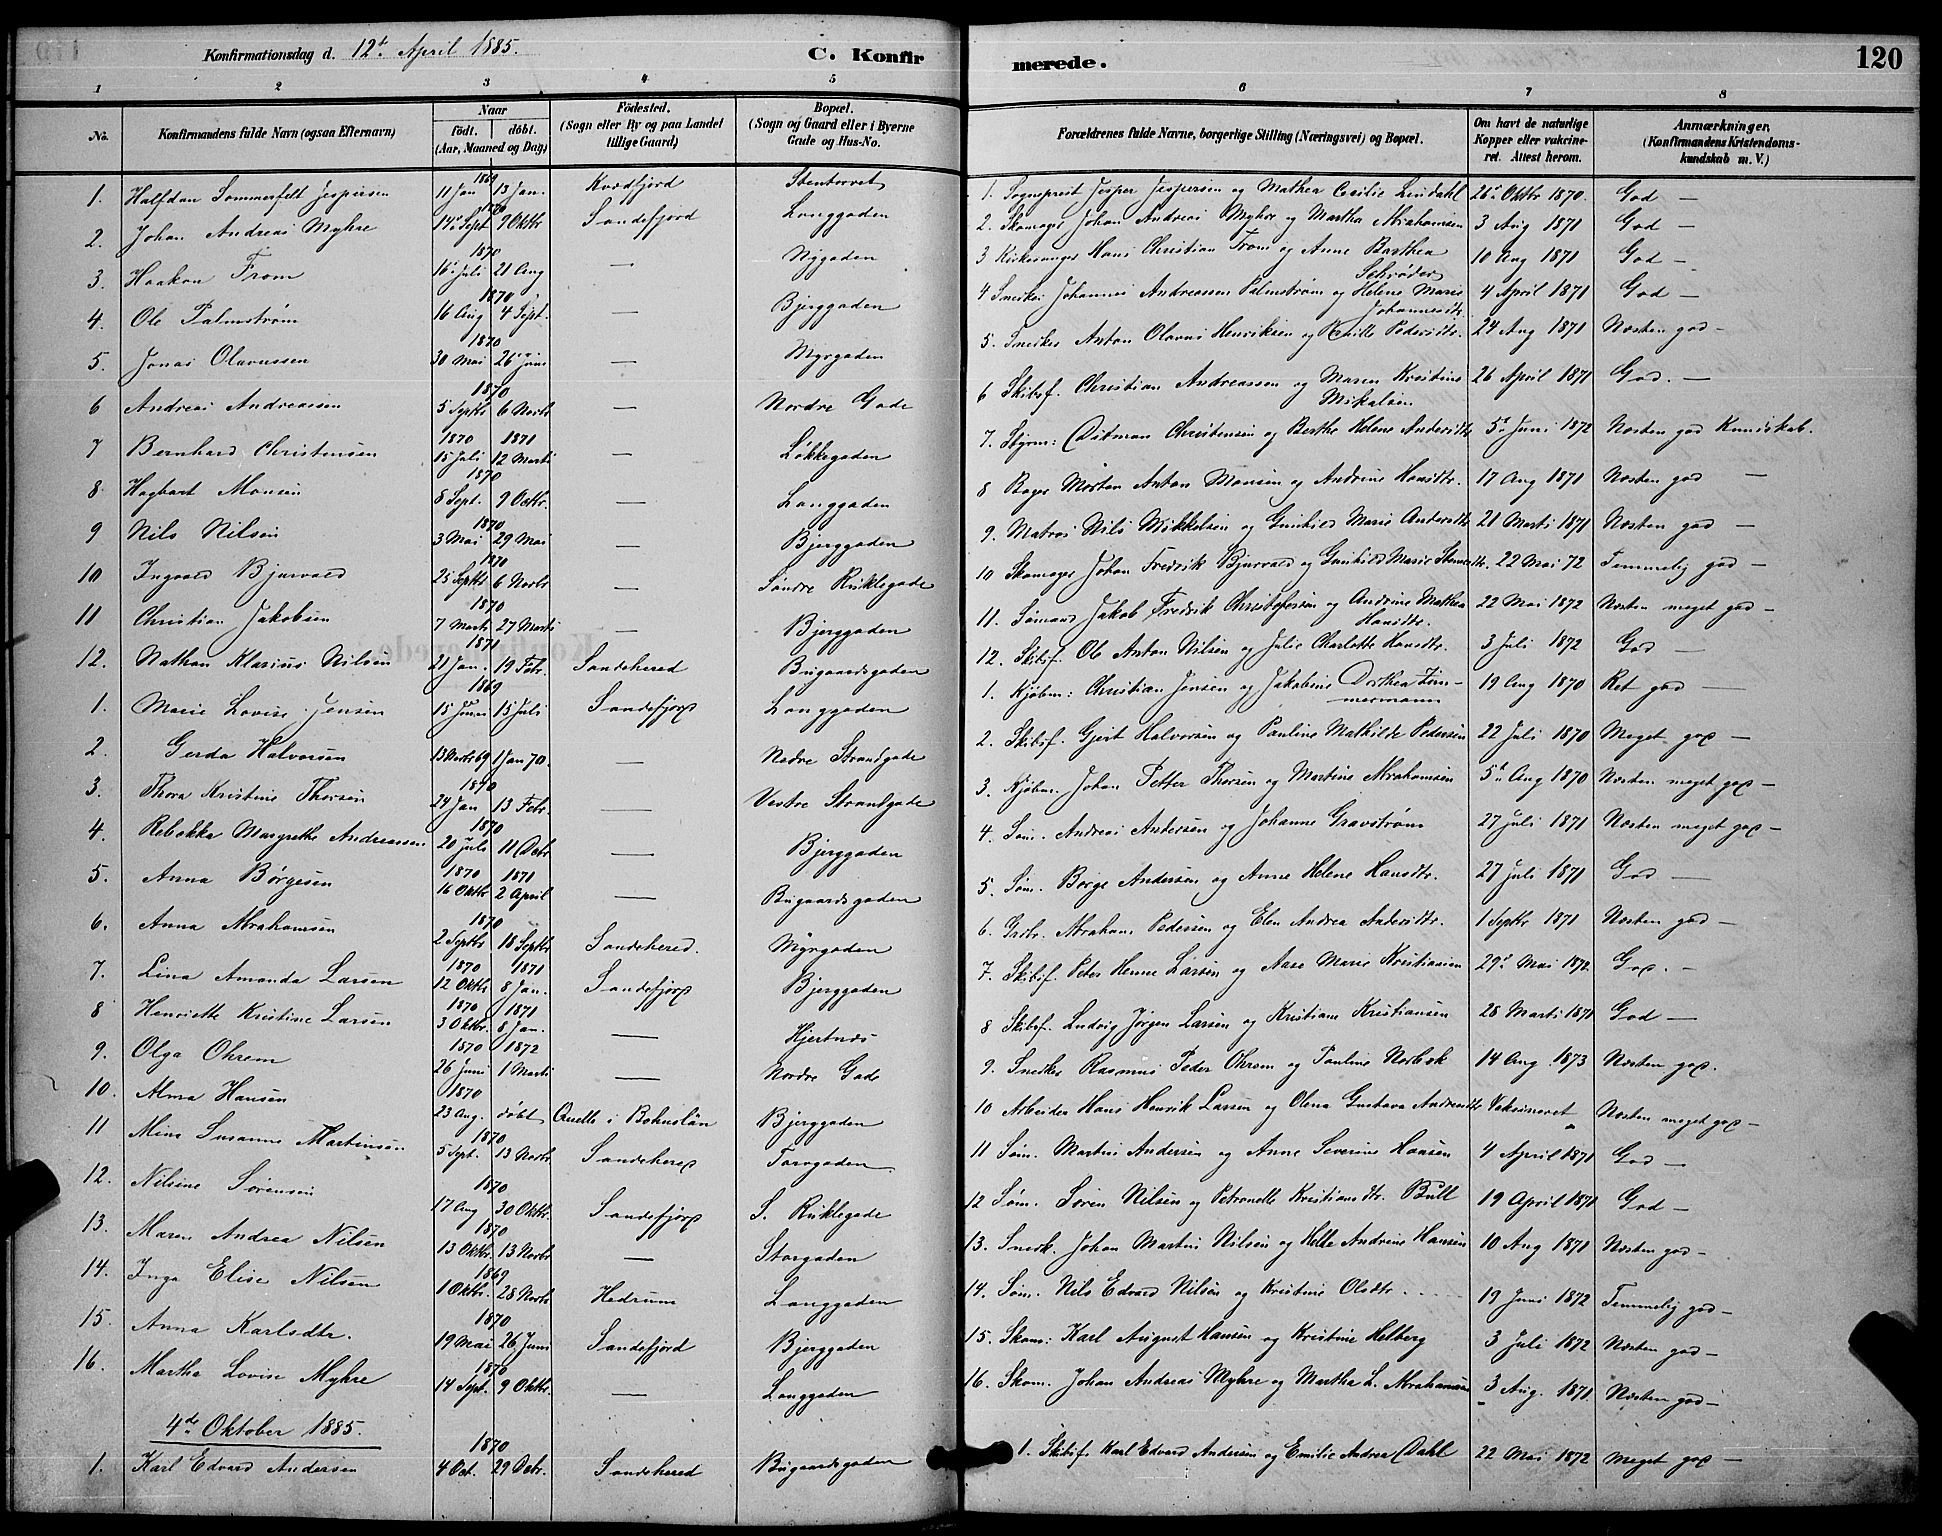 Konfirmationsdag d. 12te April 1885. C. Konfirmerede. 120
1 2 3 4 5 6 7 8
No. Konfirmandens fulde Navn (ogsaa Efternavn) Naar født. døbt. (Aar, Maaned og Dag) Födested. (Sogn eller By og paa Landet tillige Gaard) Bopæl. (Sogn og Gaard eller i Byerne Gade og Hus-No. Forældrenes fulde Navne, borgerlige Stilling (Næringsvei) og Bopæl. Om havt de naturlige Kopper eller vakcineret. Attest herom. Anmærkninger. (Konfirmandens Kristendomskundskab m. V.)
1. Halfdan Sommerfelt Jespersen 1869 11 Jan 13 Jan. Kvædfjord Stentorvet 1. Sogneprest Jesper Jespersen og Mathea Cecilie Lindahl 26 Oktbr 1870. God —
2. Johan Andreas Myhre 1870 14 Sept 9 Oktbr Sandefjord Langgaden 2. Skomager Johan Andreas Myhre og Martha Abrahamsen 3 Aug 1871 God —
3. Haakon From 1870 16 Juli 21 Aug — Nygaden 3 Kirkesanger Hans Christian From og Anne Berthea Schrøder 10 Aug 1871 God —
4. Ole Palmstrøm 1870 16 Aug 4 Sept. — Bjerggaden 4 Snedker Johannes Andreassen Palmstrøm og Helene Marie Johannesdtr. 4 April 1871 God —
5. Jonas Olavussen 1870 30 Mai 26 Juni — Myrgaden 5. Snedker Anton Olavus Henriksen og Pedersdtr. 24 Aug 1871 Næsten god —
6 Andreas Andreassen 1870 5 Septbr 6 Novbr — Nordre Gade 6 Skibsf. Christian Andreassen og Maren Kristine Mikalsen 26 April 1871 God. —
7 Bernhard Christensen 1870 1871 15 Juli 12 Marts — Løkkegaden 7. Styrm: Ditman Christensen og Berthe Helene Andersdtr 5te Juni 1872 Næsten god Kundskab.
8 Hagbart Monsen 1870 8 Sept. 9 Octbr. — Langgaden 8 Bager Morten Anton Monsen og Andrine Hansdtr. 17 Aug 1871 Næsten god —
9 Nils Nilsen 1870 3 Mai 29 Mai — Bjerggaden 9. Matros Nils Mikkelsen og Gunhild Marie Andersdtr 21 Marts 1871 Næsten god —
10 Ingvald Bjurvald 1870 25 Septbr 6 Novbr — Søndre Ruklegade 10 Skomager Johan Fredrik Bjurvald og Gunhild Marie 22 Mai 72 Temmelig god —
11 Christian Jakobsen 1870 7 Marts 27 Marts — Bjerggaden 11. Sømand Jakob Fredrik Christofersen og Andrine Mathea Hansdtr. 22 Mai 1872 Næsten meget god —
12. Nathan Klarius Nilsen 1871 21 Jan. 19 Febr. Sandeherred Bugaardsgaden 12. Skibsf. Ole Anton Nilsen og Julie Charlotte Hansdtr. 3 Juli 1872 God —
1. Marie Lovise Jensen 1869 15 Juni 15 Juli Sandefjord Langgaden 1. Kjøbm: Christian Jensen og Jakobine Dorthea Zimmermann 19 Aug 1870 Ret god —
2. Gerda Halvorsen 13 Novbr 69 1 Jan 70. — Nedre Strandgade 2. Skibsf. Gjert Halvorsen og Pauline Mathilde Pedersen 22 Juli 1870 Meget god —
3. Thora Kristine Thorsen 1870 24 Jan 13 Febr. — Vestre Strandgade 3. Kjøbm. Johan Petter Thorsen og Martine Abrahamsen 5te Aug 1870 Næsten meget god —
4. Rebekka Margrethe Andreassen 1870 20 Juli 11 Octbr — Bjerggaden 4. Søm. Andreas Andersen og Johanne Gravstrøm 27 Juli 1871 Næsten meget god —
5. Anna Børgesen 1870 1871 16 Oktbr 2 April — Bugaardsgaden 5. Søm. Børge Andersen og Anne Helene Hansdtr. 27 Juli 1871 God —
6. Anna Abrahamsen 1870 2 Septbr 18 Septbr Sandeherred. Myrgaden 6. Grdbr. Abraham Pedersen og Elen Andrea Andersdtr. 1 Septbr 1871 Næsten god —
7. Lina Amanda Larsen 1870 1871 12 Oktbr 8 Jan. Sandefjord Bjerggaden 7. Skibsf. Peter Larsen og Aase Marie Kristiansen 29 Mai 1872 God. —
8 Henriette Kristine Larsen 1870 1871 3 Oktbr. 8 Jan. — Hjertnæs 8 Skibsf. Ludvig Jørgen Larsen og Kristiane Kristiansen 28 Marts 1871 God —
9. Olga Ohrem 1870 1872 26 Juni 1 Marts — Nordre Gade 9. Snedker Rasmus Peder Ohrem og Pauline Norbæk 14 Aug. 1873 Næsten god.
10. Alma Hansen 1870 23 Aug. døbt i Bohuslän Bjerggaden 10 Arbeider Hans Henrik Larsen og Olena Gustava Andreasdtr Vaksineret Næsten meget god —
11 Mina Susanne Martinsen 1870 5 Sept. 13 Novbr. Sandeherred Torvgaden 11 Søm. Martin Andersen og Anne Severine Hansen 4 April 1871 God —
12. Nilsine Sørensen 1870 17 Aug 30 Oktbr. Sandefjord S. Ruklegade 12 Søm. Søren Nilsen og Petronelle Kristiansdtr. Bull 19 April 1871 God —
13. Maren Andrea Nilsen 1870 13 Oktbr. 13 Novbr — Storgaden 13. Snedk. Johan Martin Nilsen og Helle Andrine Hansen 10 Aug 1871 Næsten god —
14. Inga Elise Nilsen 1869 1 Oktbr. 28 Novbr Hedrum Langgaden 14. Søm. Nils Edvard Nilsen og Kristine Olsdtr. 19 Juni 1872 Temmelig god —
15. Anna Karlsdtr. 1870 19 Mai 26 Juni Sandefjord Bjerggaden 15. Skom: Karl August Hansen og Kristine Helberg 3 Juli 1872 Næsten god —
16. Martha Lovise Myhre 1870 14 Sept. 9 Oktbr. — Langgaden 16. Skom. Johan Andreas Myhre og Martha L. Abrahamsen 3 Aug. 1871. Næsten god —
4de Oktober 1885.
1. Karl Edvard Andersen 1870 4 Oct. 29 Octbr. Sandeherred Bugaardsgaden 1. Skibsf. Karl Edvard Andersen og Emilie Andrea Dahl 22 Mai 1872 Meget god —